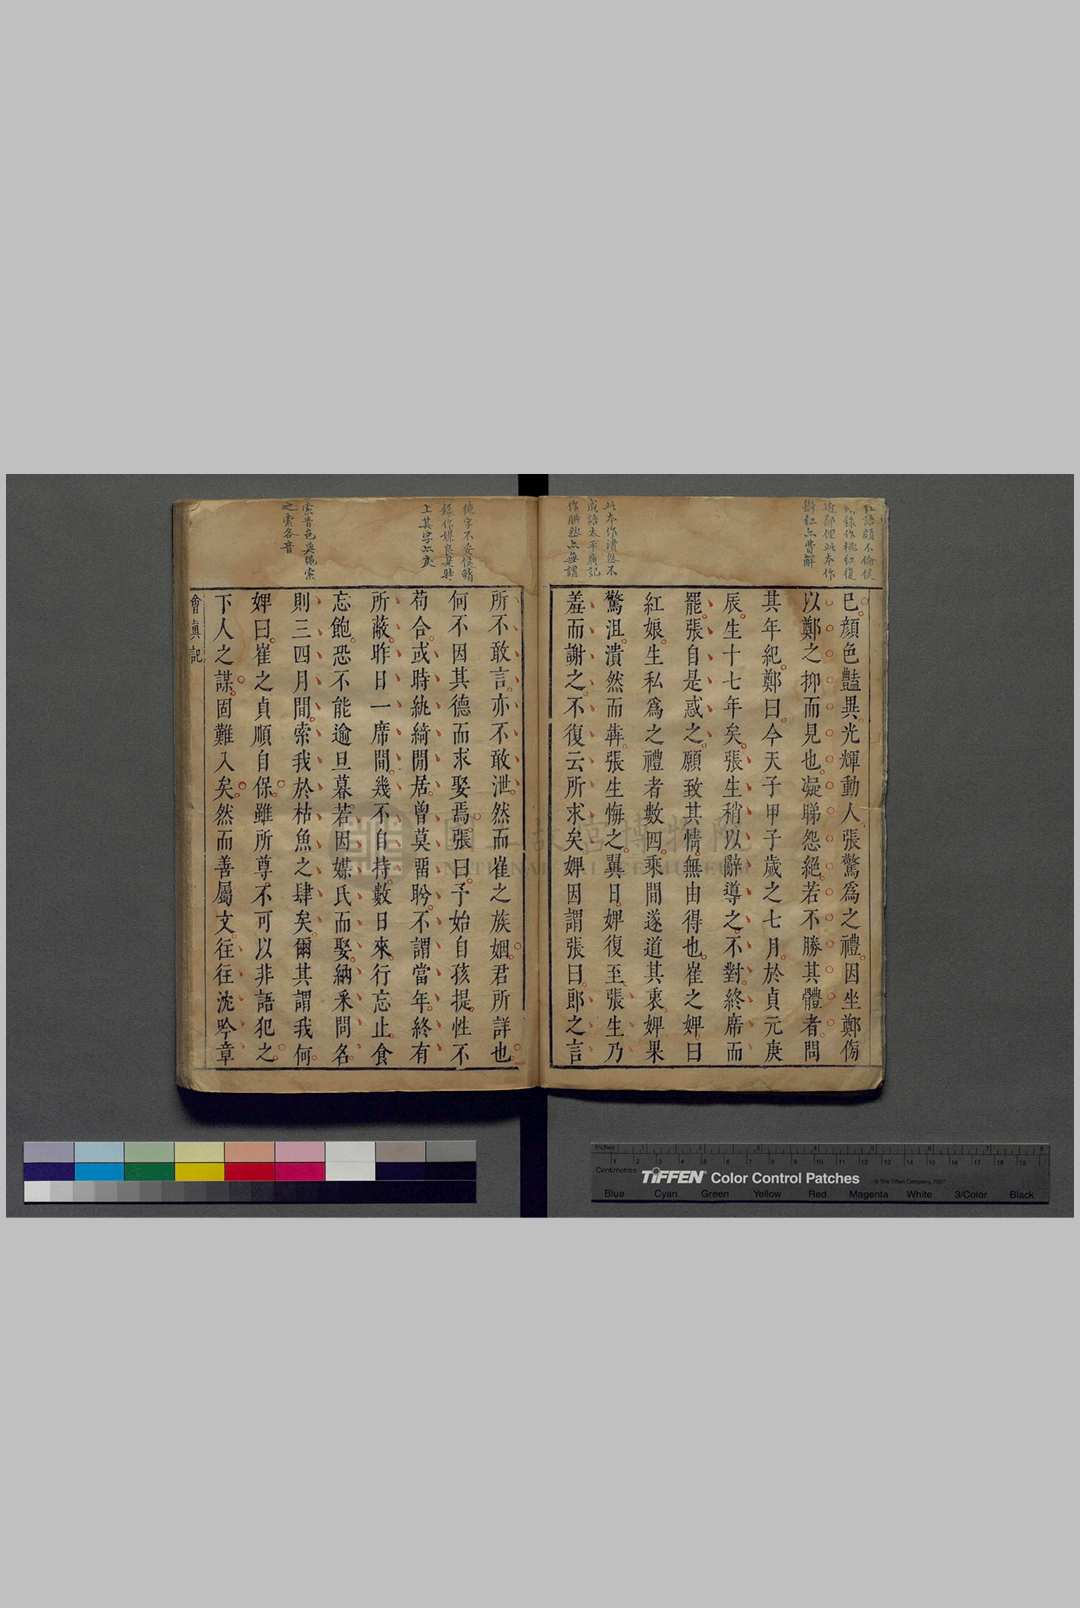 已顏色豔異光輝動人張驚爲之禮因坐鄭傍
以鄭之抑而見也凝睇怨絕若不勝其體者問
其年紀鄭曰今天子甲子歲之七月於貞元庚
辰生十七年矣張生稍以辭導之不對終席而
罷張自是惑之願致其情無由得也崔之婢曰
紅娘生私爲之禮者數四乘間遂道其衷婢果
驚沮潰然而犇張生悔之翼日婢復至張生乃
羞而謝之不復云所求矣婢因謂張曰郎之言
所不敢言亦不敢泄然而崔之族姻君所詳也
何不因其德而求娶焉張曰予始自孩提性不
苟合或時紈綺閒居曾莫畱盻不謂當年終有
所蔽昨日一席間幾不自持數日來行忘止食
忘飽恐不能逾旦暮若因媒氏而娶納釆問名
則三四月間索我於枯魚之肆矣爾其謂我何
婢曰崔之貞順自保雖所尊不可以非語犯之
下人之謀固難入矣然而善屬文往往沈吟章
會真記
此本作潰然不
成語太平廣記
作腆然亦無謂
上其字亦衷
索昔色莫
之索各音
國立故宮博物院
NATIONAL PALACE MUSEUM
Inches
Centimetres
TIFFEN Color Control Patches
© The Tiffen Company, 2007
Blue Cyan Green Yellow Red Magenta White 3/Color Black